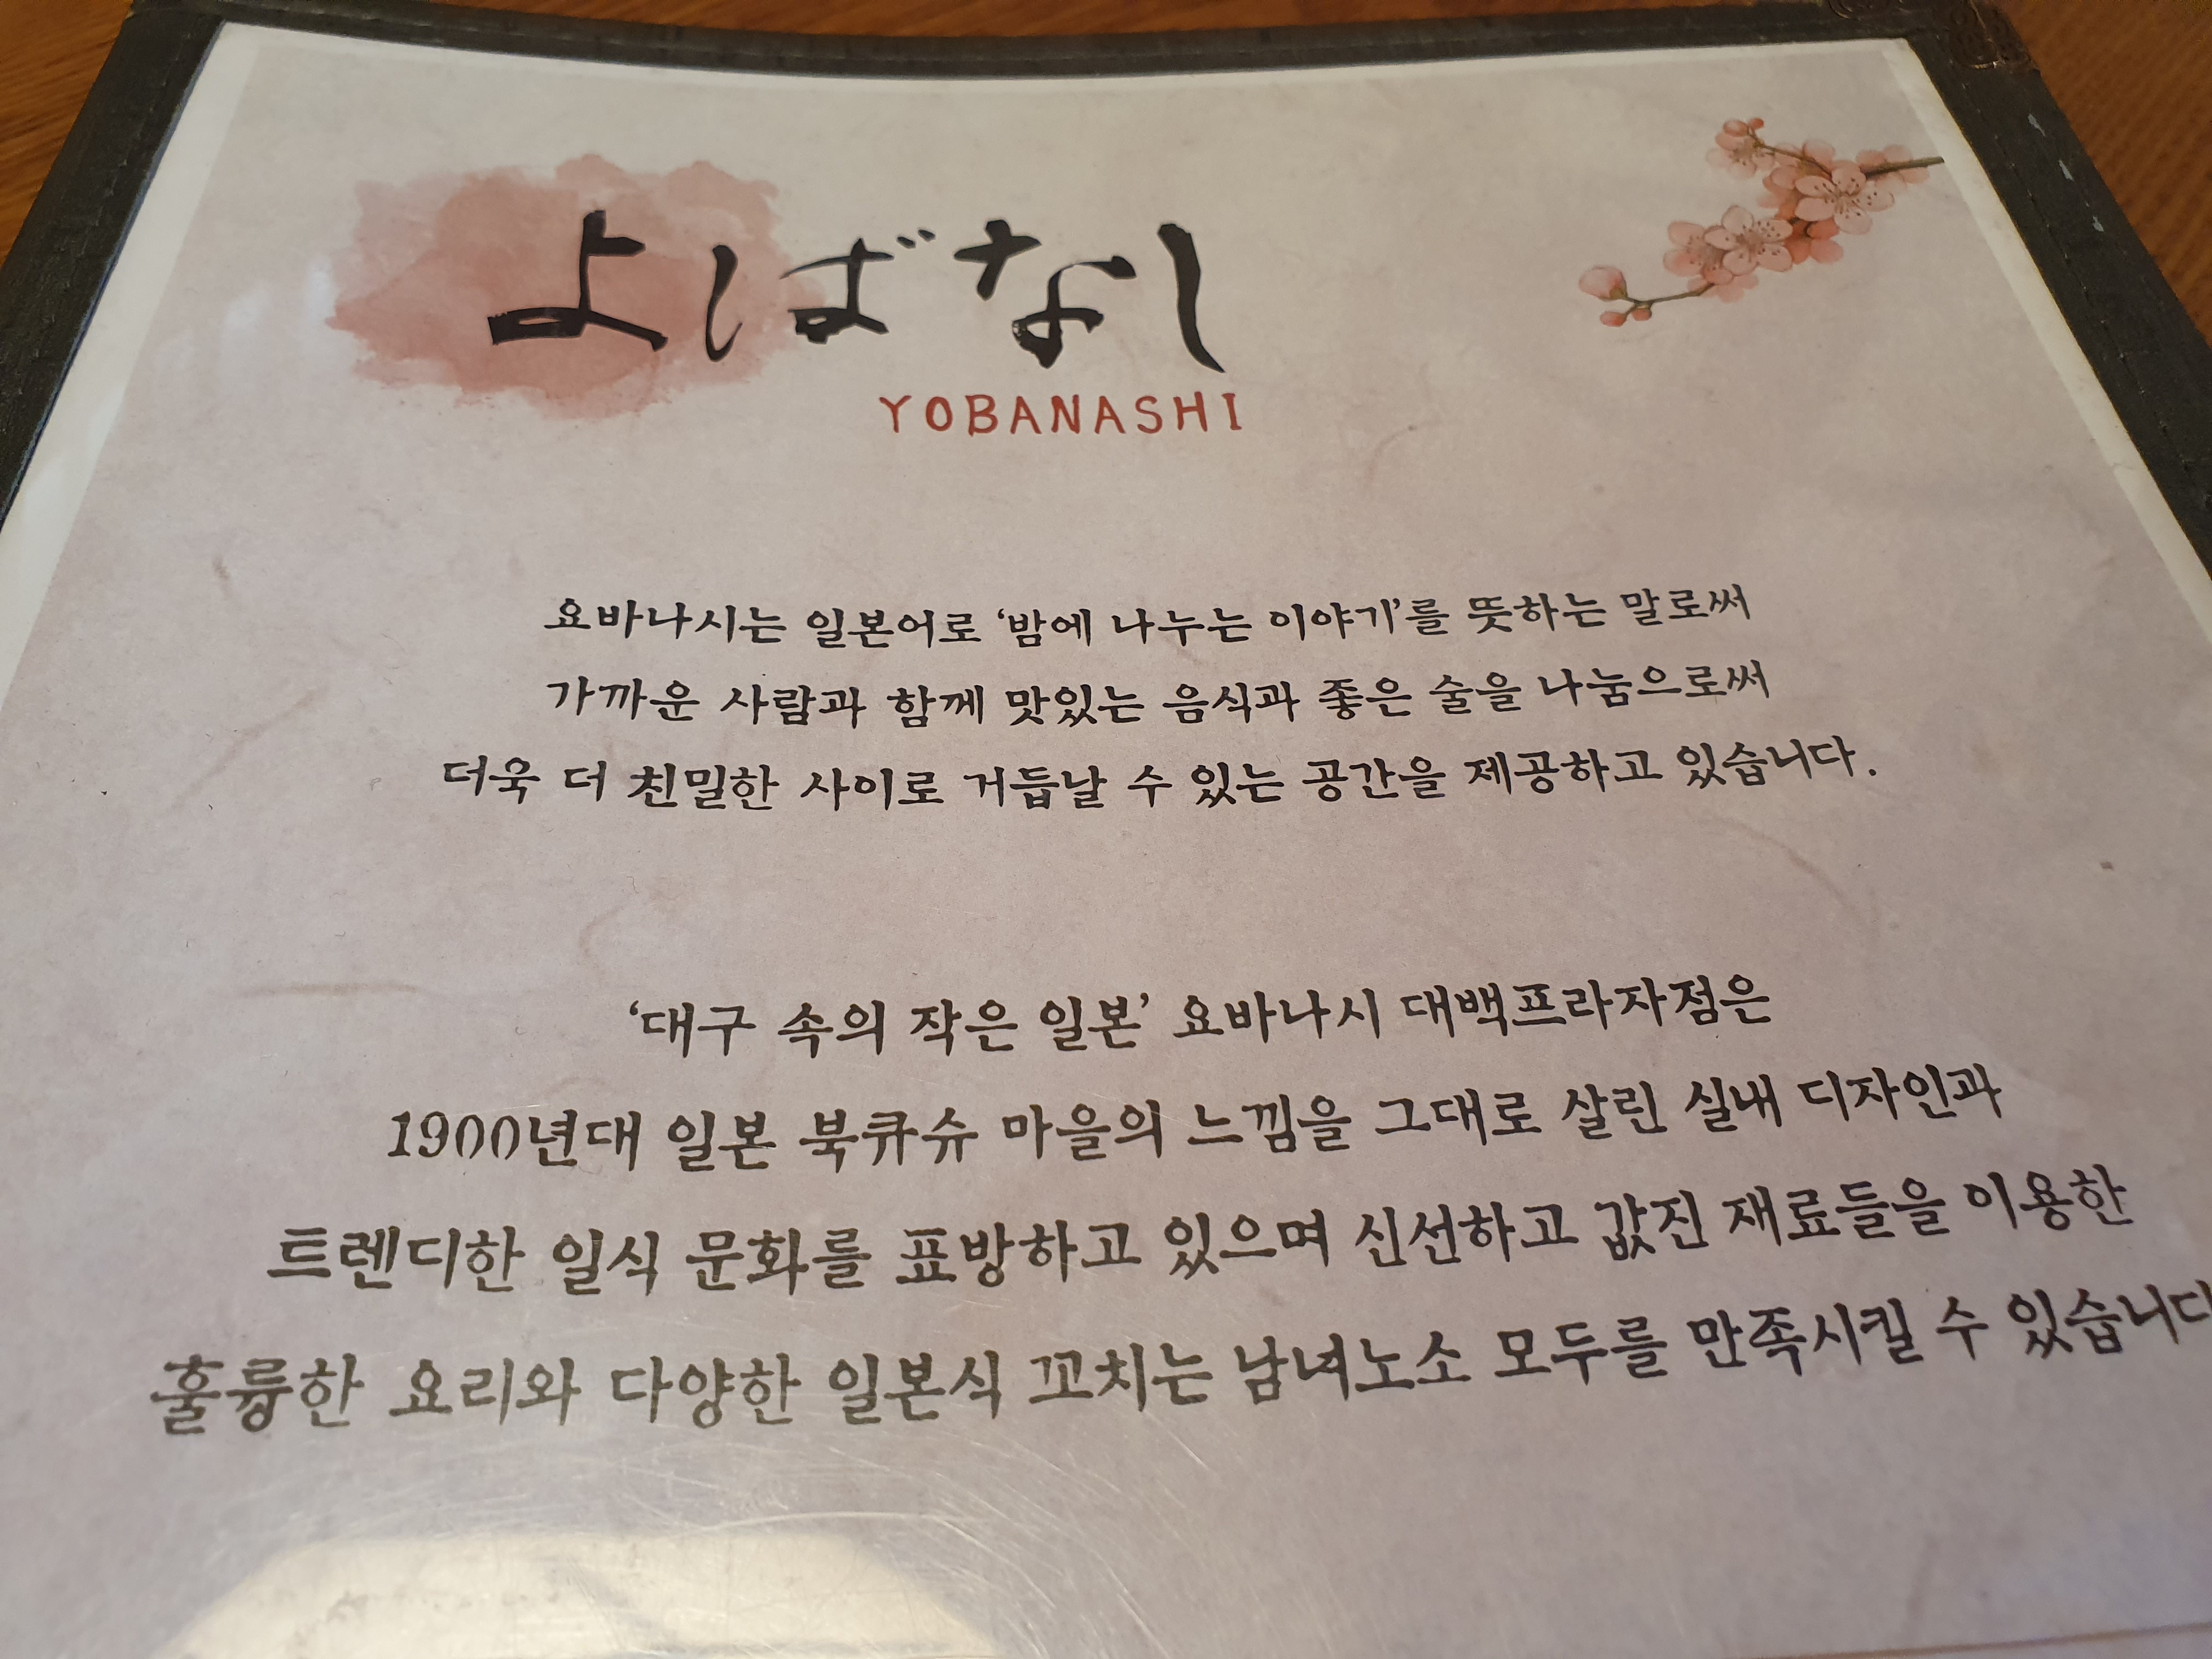 よばなし
YOBANASHI
요바나시는 일본어로 ‘밤에 나누는 이야기’를 뜻하는 말로써
가까운 사람과 함께 맛있는 음식과 좋은 술을 나눔으로써
더욱 더 친밀한 사이로 거듭날 수 있는 공간을 제공하고 있습니다.
‘대구 속의 작은 일본’ 요바나시 대백프라자점은
1900년대 일본 북큐슈 마을의 느낌을 그대로 살린 실내 디자인과
트렌디한 일식 문화를 표방하고 있으며 신선하고 값진 재료들을 이용한
훌륭한 요리와 다양한 일본식 꼬치는 남녀노소 모두를 만족시킬 수 있습니다